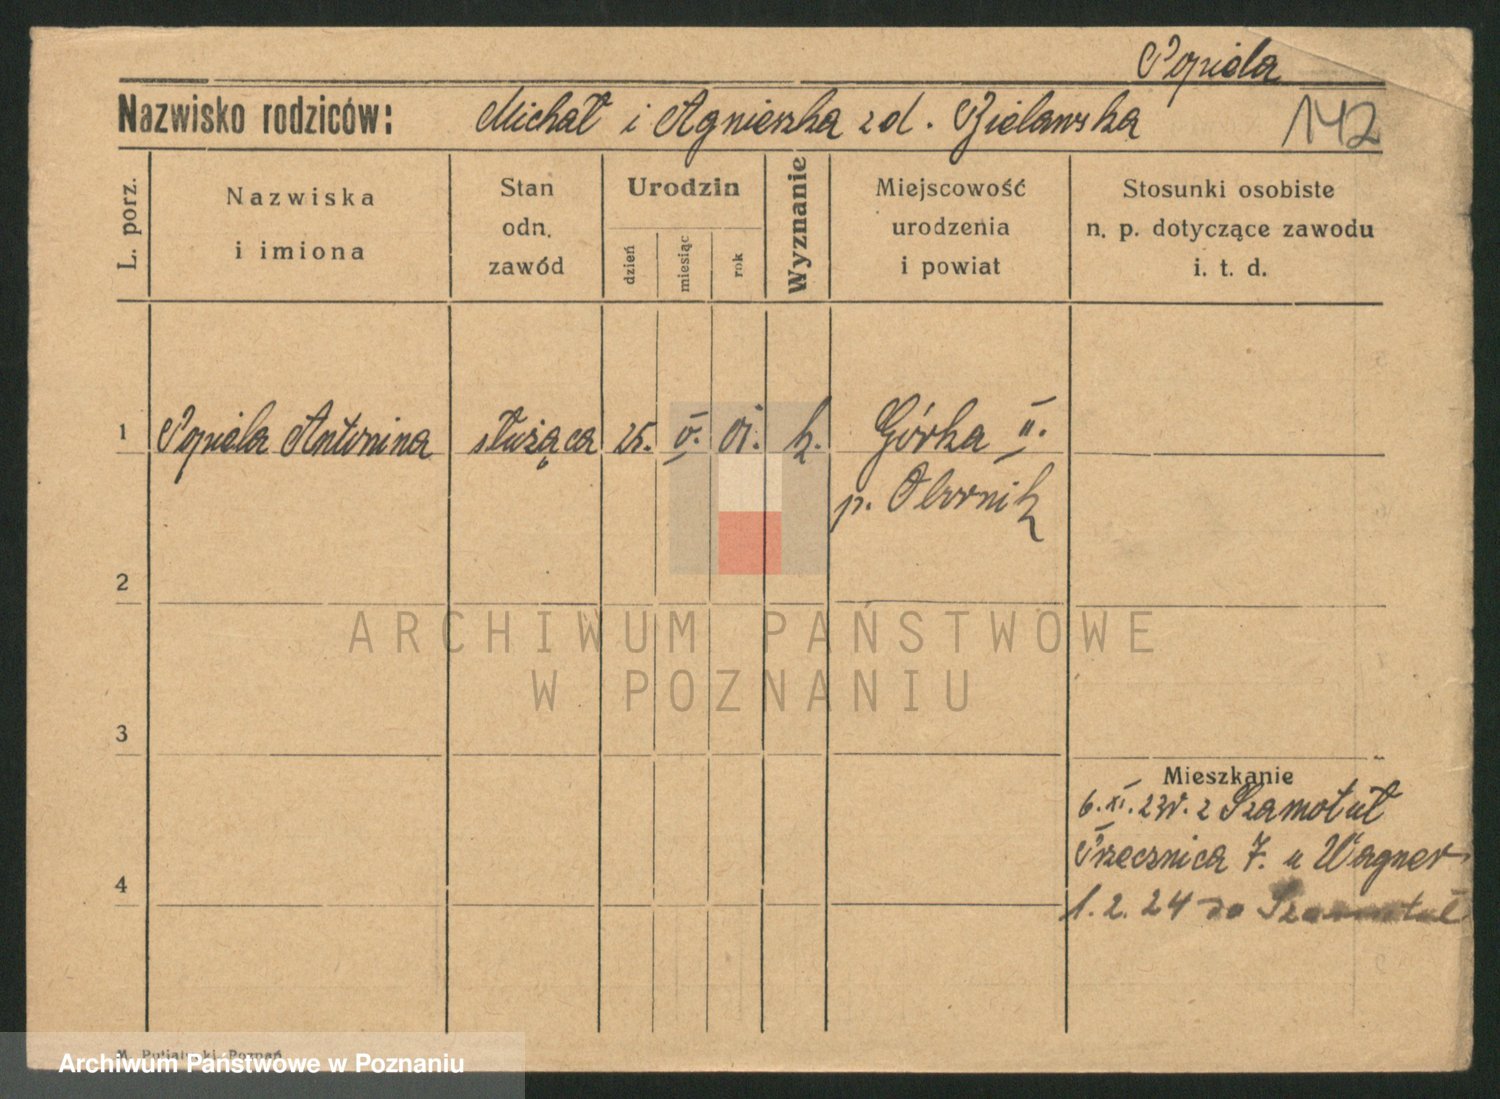 Popiela
Nazwisko rodziców: Michał i Agnieszka z d. Bielawska 142
L. porz.
Nazwiska
i imiona
Stan
odn.
zawód
Urodzin
dzień
miesiąc
rok
Wyznanie
Miejscowość
urodzenia
i powiat
Stosunki osobiste
n. p. dotyczące zawodu
i. t. d.
1 Popiela Antonina służąca 25. V. 01. k. Górka II.
p. Obornik
2
ARCHIWUM PAŃSTWOWE
W POZNANIU
3
Mieszkanie
6. XI. 23r. z Szamotuł
Przecznica 7. u Wagner
4
1. 2. 24 do Szamotuł
Poznań
Archiwum Państwowe w Poznaniu